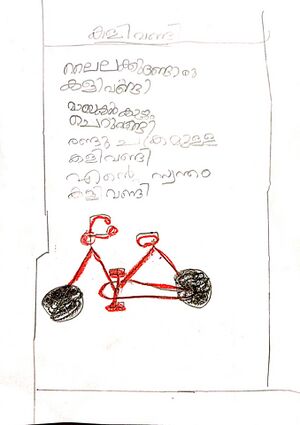 കളിവണ്ടി
ലൈലക്കുണ്ടൊരു
കളിവണ്ടി
ചെറുവണ്ടി
രണ്ടു ചക്രമുള്ള
കളിവണ്ടി
എന്റെ സ്വന്തം
കളിവണ്ടി